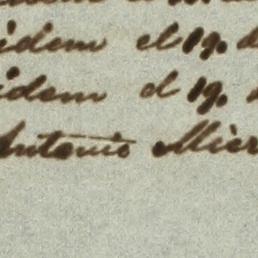 idem el 19. d
idem el 19.
Antonio Mier